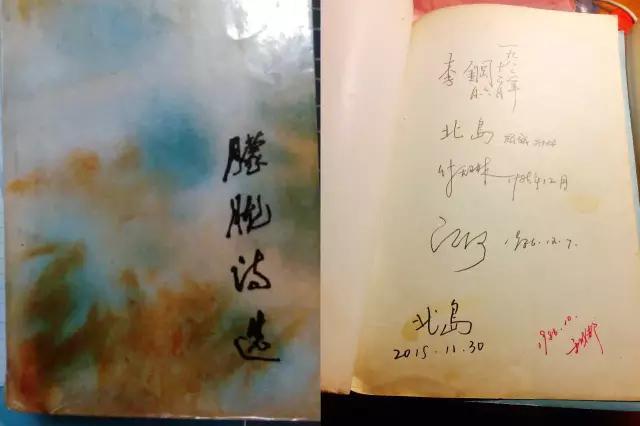 朦胧诗选
李鋼
一九八六年
北島
1986年12月
江河 1986.12.7.
北島
2015.11.30
1986.10.
于成都